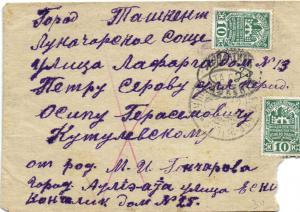 Город Ташкент
Луначарское Соще
улица Лафарга дом № 13
Петру Серову для перид.
Осипу Герасемовичу
Кутулевскому
от род. М. И. Гончарова
город Аулиэата улица
дом № 25.
10 К
10 К